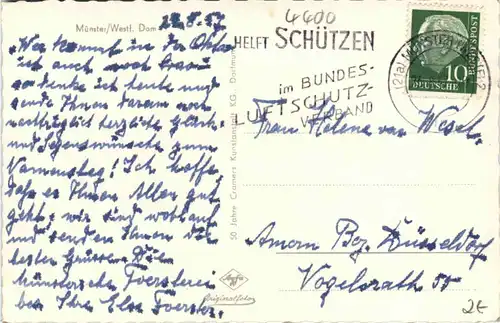 Münster/Westf. Dom
22.8.57
4400
HELFT SCHÜTZEN
im BUNDES-
LUFTSCHUTZ-
VERBAND
(21a) MÜNSTER (WESTF) 2
DEUTSCHE
BUNDESPOST
10
"Wer kommt in der
ist auch noch brav"
so denke ich heute und
sende Ihnen darum noch
nachträglich herzliche Glück-
und Segenswünsche zum
Namenstag! Ich hoffe,
daß es Ihnen Allen gut
geht, wir sind wohlauf
und senden Ihnen die
besten Grüsse. Die
münstersche Foersterei
bei Ihre Else Foerster.
50 Jahre Cramers Kunstanstalt KG Dortmund
Agfa
Originalfoto
Frau Helene van Wesel
Amern Bez. Düsseldorf
Vogelsrath 55
2€